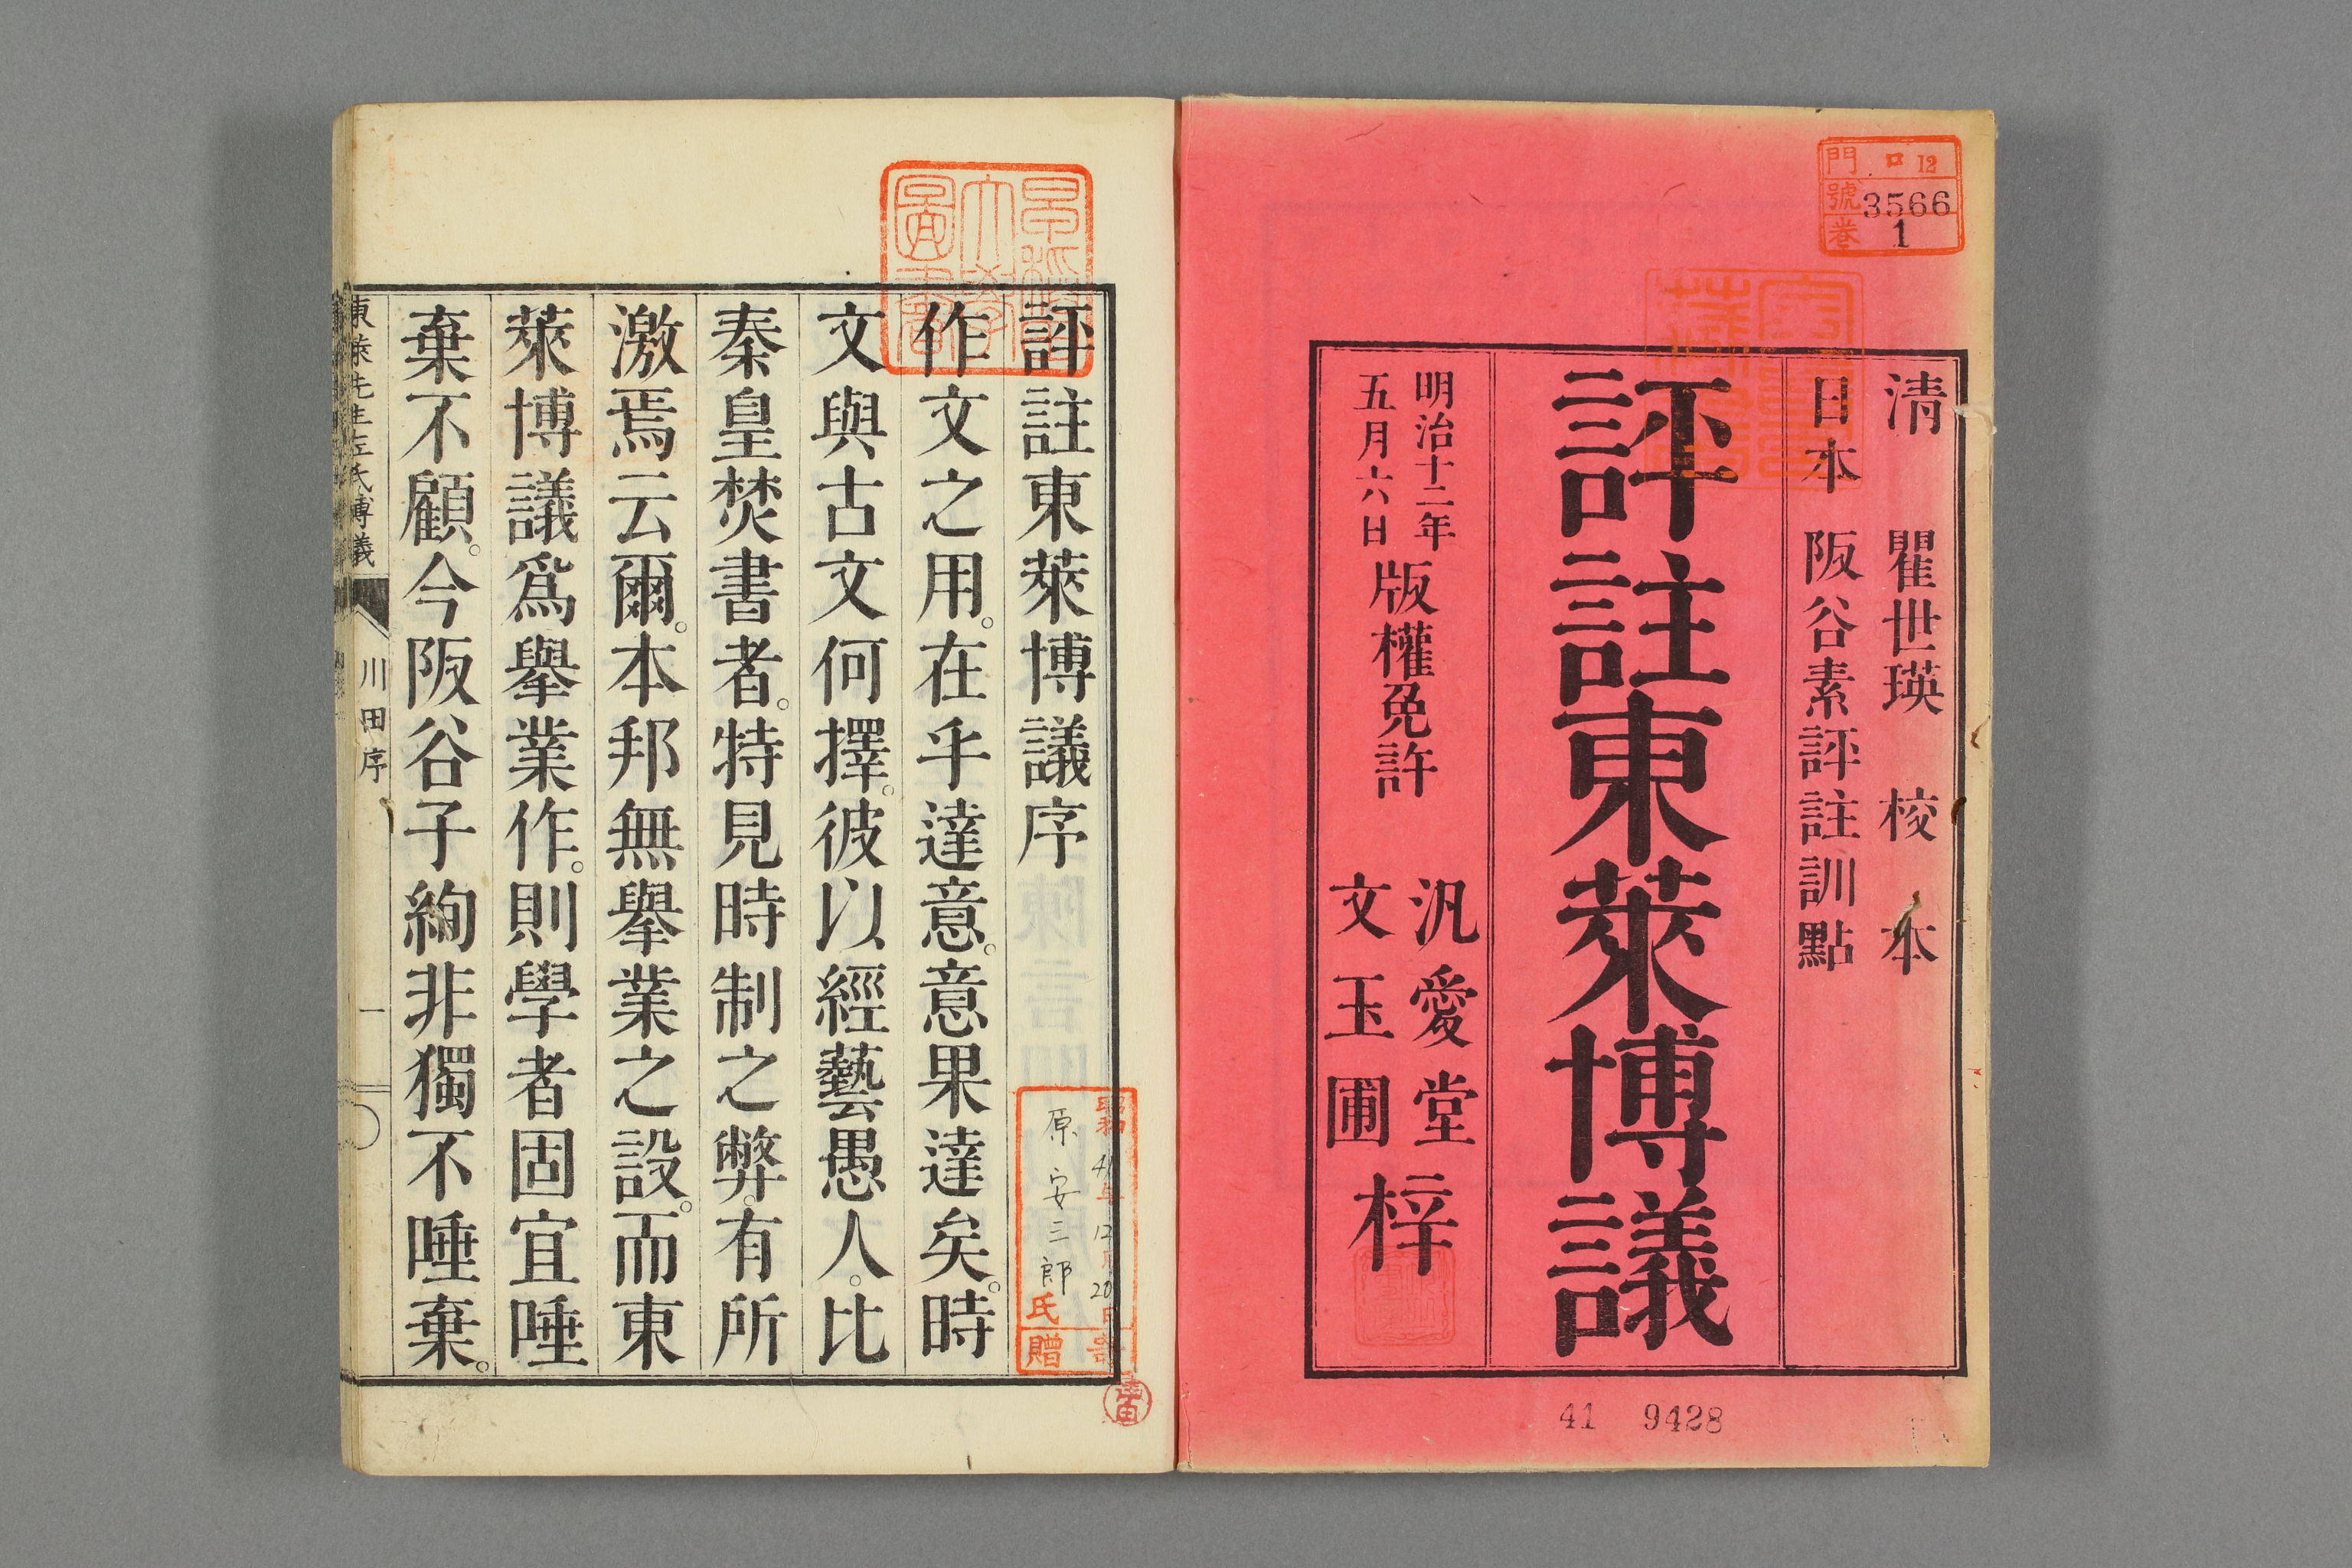 門 口 12
號 3566
巻 1
清 瞿世瑛 校本
日本 阪谷素評註訓點
評註東萊博議
明治十二年
五月六日
版權免許
汎愛堂
文玉圃
梓
41 9428
評註東萊博議序
作文之用。在乎達意。意果達矣。時
文與古文何擇。彼以經藝愚人。比
秦皇焚書者。特見時制之弊。有所
激焉云爾。本邦無擧業之設。而東
萊博議爲擧業作。則學者固宜唾
棄不顧。今阪谷子絢非獨不唾棄。
昭和41年12月20日
原安三郎氏
寄贈
東萊先生左氏博議 川田序 一